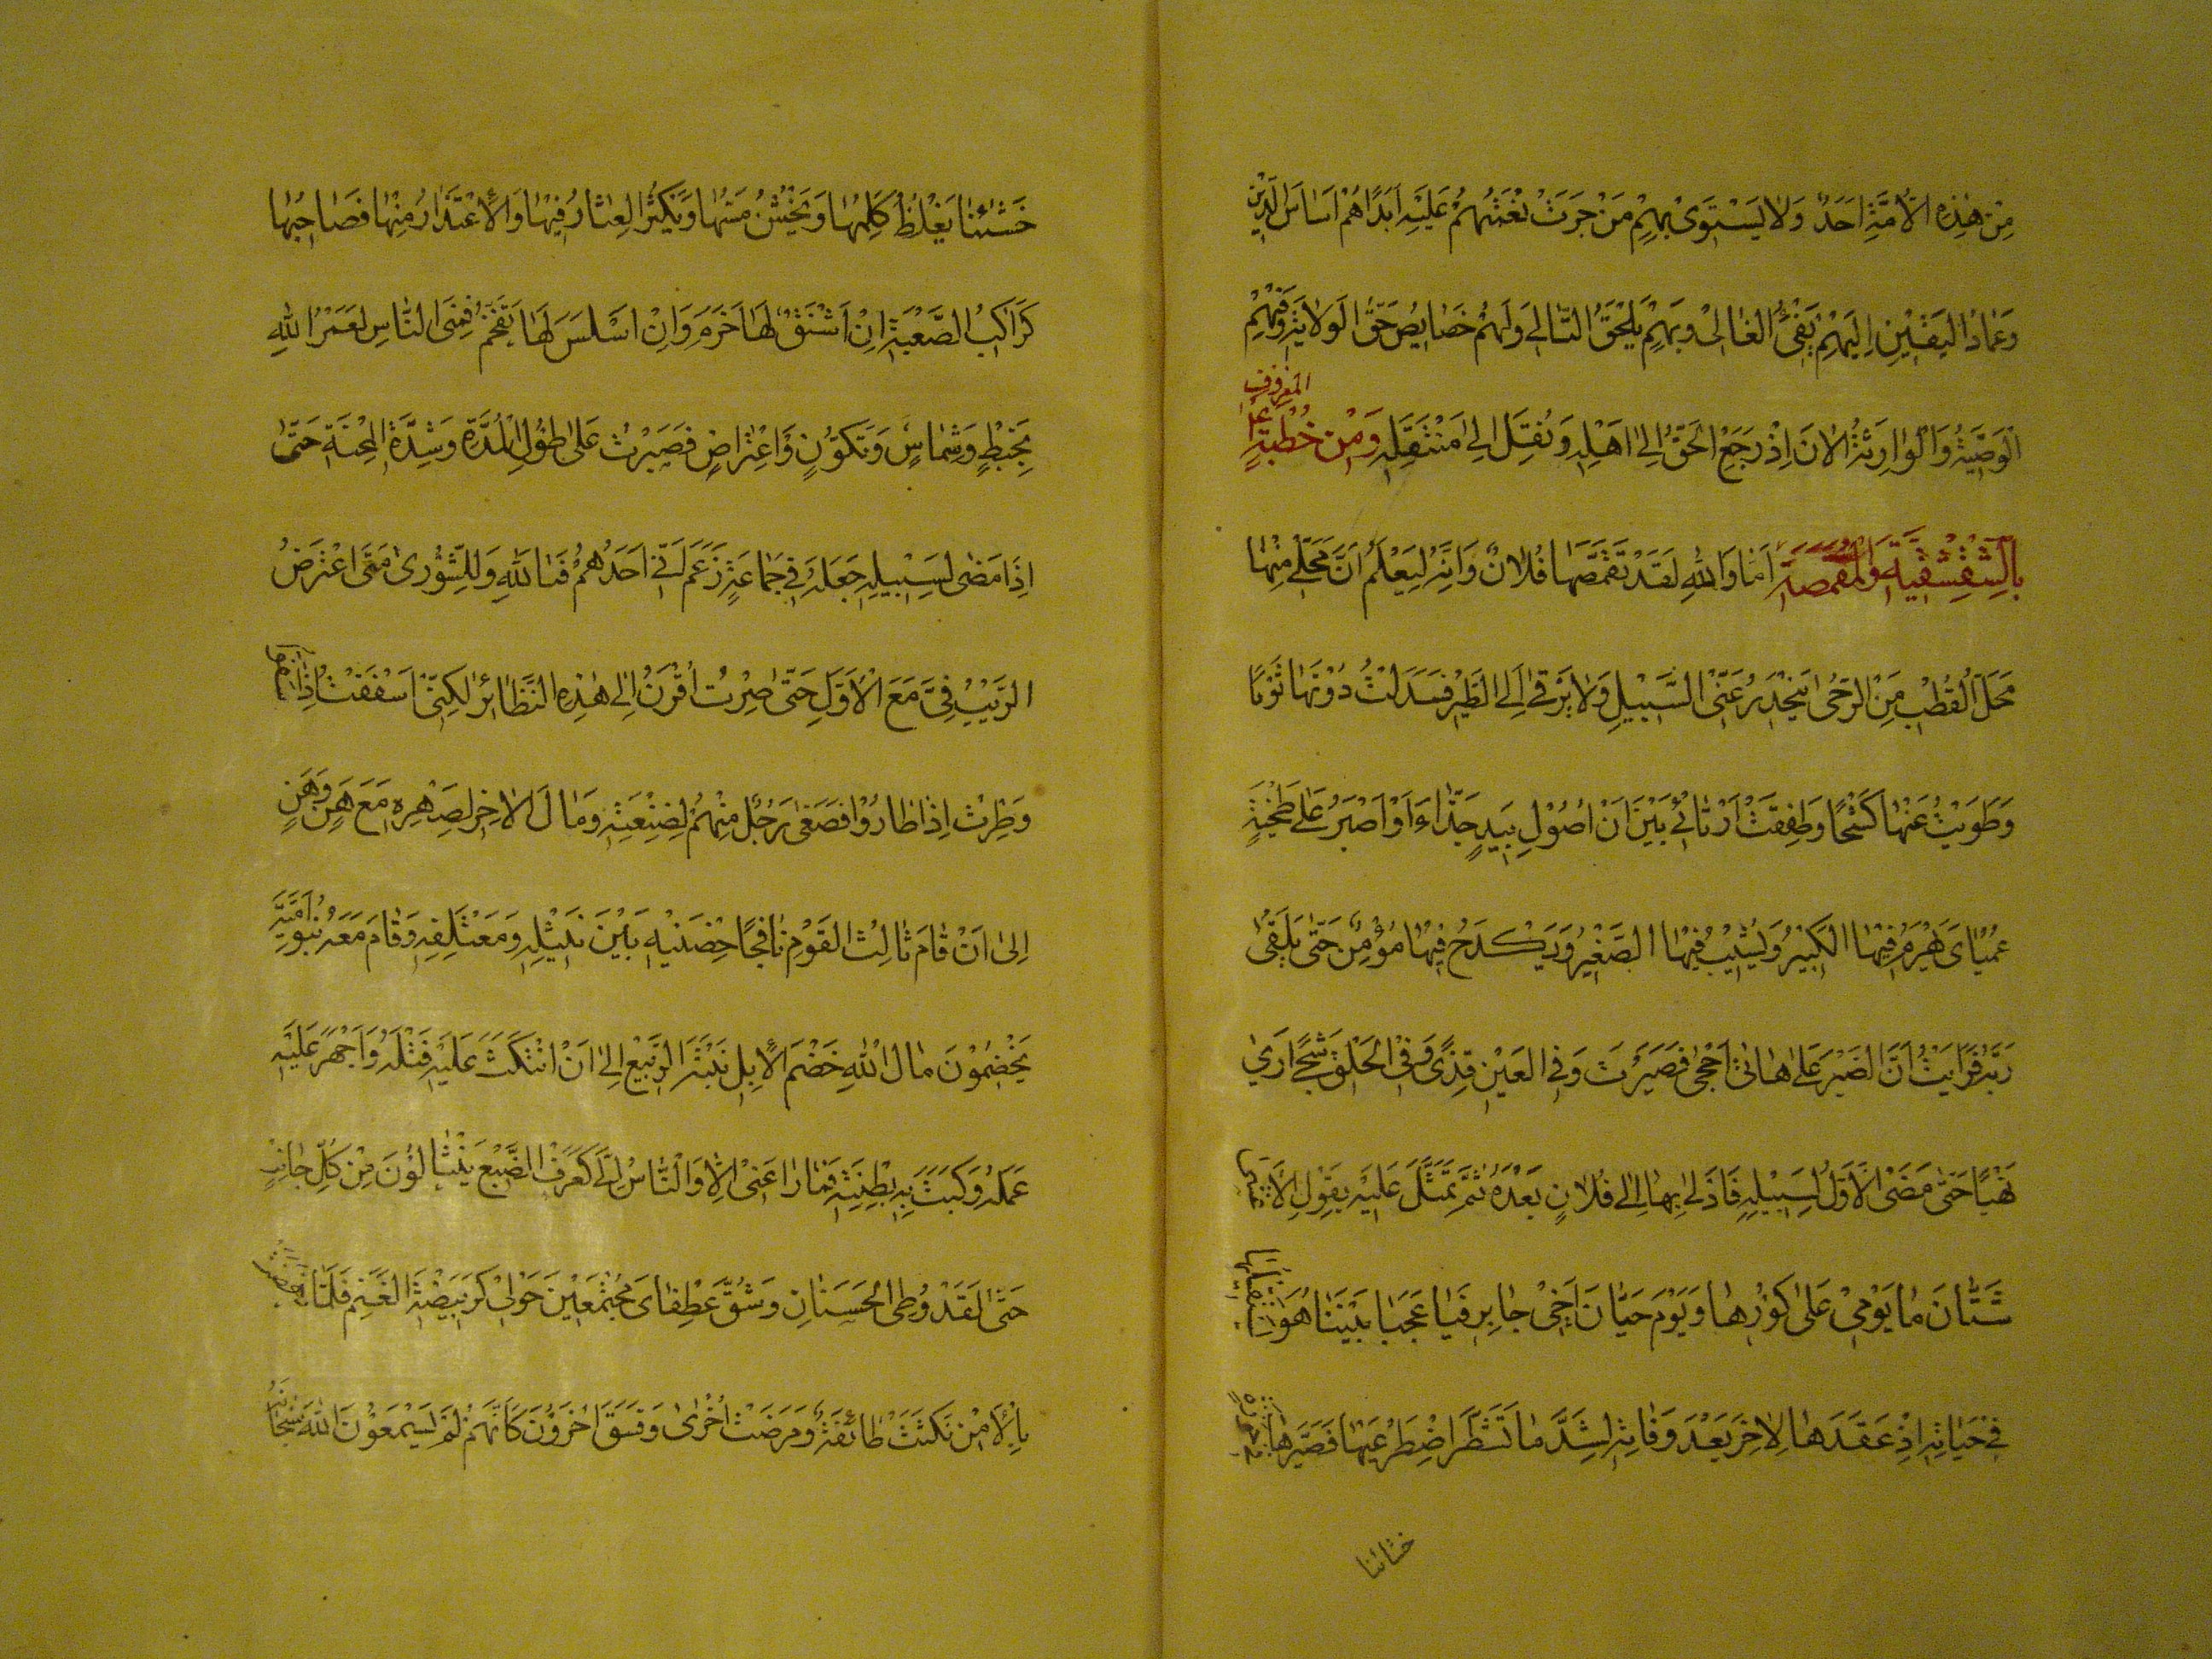 مِنْ هٰذِهِ الْاُمَّةِ اَحَدٌ وَلَا يَسْتَوِى بِهِمْ مَنْ جَرَتْ نِعْمَتُهُمْ عَلَيْهِ اَبَدًا هُمْ اَسَاسُ الدِّيْنِ
وَعِمَادُ الْيَقِيْنِ اِلَيْهِمْ يَفِىْءُ الْغَالِىْ وَبِهِمْ يَلْحَقُ التَّالِىْ وَلَهُمْ خَصَايِصُ حَقِّ الْوِلَايَةِ وَفِيْهِمُ
الْوَصِيَّةُ وَالْوِرَاثَةُ الْاٰنَ اِذْ رَجَعَ الْحَقُّ اِلٰى اَهْلِهِ وَنُقِلَ اِلٰى مُنْتَقَلِهِ وَمِنْ خُطْبَةٍ لَهُ المعروف
بِالشِّقْشِقِيَّةِ وَالْمُقَمَّصَةِ اَمَا وَاللّٰهِ لَقَدْ تَقَمَّصَهَا فُلَانٌ وَاِنَّهُ لَيَعْلَمُ اَنَّ مَحَلِّىْ مِنْهَا
مَحَلُّ الْقُطْبِ مِنَ الرَّحٰى يَنْحَدِرُ عَنِّى السَّيْلُ وَلَا يَرْقٰى اِلَىَّ الطَّيْرُ فَسَدَلْتُ دُوْنَهَا ثَوْبًا
وَطَوَيْتُ عَنْهَا كَشْحًا وَطَفِقْتُ اَرْتَائِىْ بَيْنَ اَنْ اَصُوْلَ بِيَدٍ جَذَّاءَ اَوْ اَصْبِرَ عَلٰى طَخْيَةٍ
عَمْيَاءَ يَهْرَمُ فِيْهَا الْكَبِيْرُ وَيَشِيْبُ فِيْهَا الصَّغِيْرُ وَيَكْدَحُ فِيْهَا مُؤْمِنٌ حَتّٰى يَلْقٰى
رَبَّهُ فَرَاَيْتُ اَنَّ الصَّبْرَ عَلٰى هَاتٰى اَحْجٰى فَصَبَرْتُ وَفِى الْعَيْنِ قَذًى وَفِى الْحَلْقِ شَجًى اَرٰى
نَهْبًا حَتّٰى مَضَى الْاَوَّلُ لِسَبِيْلِهِ فَاَدْلٰى بِهَا اِلٰى فُلَانٍ بَعْدَهُ ثُمَّ تَمَثَّلَ عَلَيْهِ بِقَوْلِ الْاَعْشٰى
شَتَّانَ مَا يَوْمِىْ عَلٰى كُوْرِهَا وَيَوْمُ حَيَّانَ اَخِىْ جَابِرِ فَيَا عَجَبًا بَيْنَنَا هُوَ يَسْتَقِيْلُهَا
فِىْ حَيَاتِهِ اِذْ عَقَدَهَا لِاٰخَرَ بَعْدَ وَفَاتِهِ لَشَدَّ مَا تَشَطَّرَا ضَرْعَيْهَا فَصَيَّرَهَا
خشائنا
خَشْنَاءَ يَغْلُظُ كَلِمُهَا وَيَخْشُنُ مَسُّهَا وَيَكْثُرُ الْعِثَارُ فِيْهَا وَالْاِعْتِذَارُ مِنْهَا فَصَاحِبُهَا
كَرَاكِبِ الصَّعْبَةِ اِنْ اَشْنَقَ لَهَا خَرَمَ وَاِنْ اَسْلَسَ لَهَا تَقَحَّمَ فَمُنِىَ النَّاسُ لَعَمْرُ اللّٰهِ
بِخَبْطٍ وَشِمَاسٍ وَتَلَوُّنٍ وَاعْتِرَاضٍ فَصَبَرْتُ عَلٰى طُوْلِ الْمُدَّةِ وَشِدَّةِ الْمِحْنَةِ حَتّٰى
اِذَا مَضٰى لِسَبِيْلِهِ جَعَلَهَ فِىْ جَمَاعَةٍ زَعَمَ اَنِّىْ اَحَدُهُمْ فَيَا لَلّٰهِ وَلِلشُّوْرٰى مَتٰى اعْتَرَضَ
الرَّيْبُ فِىَّ مَعَ الْاَوَّلِ حَتّٰى صِرْتُ اُقْرَنُ اِلٰى هٰذِهِ النَّظَائِرِ لٰكِنِّىْ اَسْفَفْتُ اِذْ اَسَفُّوْا
وَطِرْتُ اِذَا طَارُوْا فَصَغٰى رَجُلٌ مِنْهُمْ لِضِغْنِهِ وَمَالَ الْاٰخَرُ لِصِهْرِهِ مَعَ هَنٍ وَهَنٍ
اِلٰى اَنْ قَامَ ثَالِثُ الْقَوْمِ نَافِجًا حِضْنَيْهِ بَيْنَ نَثِيْلِهِ وَمُعْتَلَفِهِ وَقَامَ مَعَهُ بَنُوْ اُمَيَّةَ
يَخْضَمُوْنَ مَالَ اللّٰهِ خَضْمَ الْاِبِلِ نَبْتَةَ الرَّبِيْعِ اِلٰى اَنِ انْتَكَثَ عَلَيْهِ فَتْلُهُ وَاَجْهَزَ عَلَيْهِ
عَمَلُهُ وَكَبَتْ بِهِ بِطْنَتُهُ فَمَا رَاعَنِىْ اِلَّا وَالنَّاسُ اِلَىَّ كَعُرْفِ الضَّبُعِ يَنْثَالُوْنَ مِنْ كُلِّ جَانِبٍ
حَتّٰى لَقَدْ وُطِئَ الْحَسَنَانِ وَشُقَّ عِطْفَاىَ مُجْتَمِعِيْنَ حَوْلِىْ كَرَبِيْضَةِ الْغَنَمِ فَلَمَّا نَهَضْتُ
بِالْاَمْرِ نَكَثَتْ طَائِفَةٌ وَمَرَقَتْ اُخْرٰى وَفَسَقَ اٰخَرُوْنَ كَاَنَّهُمْ لَمْ يَسْمَعُوْنَ اللّٰهَ سُبْحَانَهُ